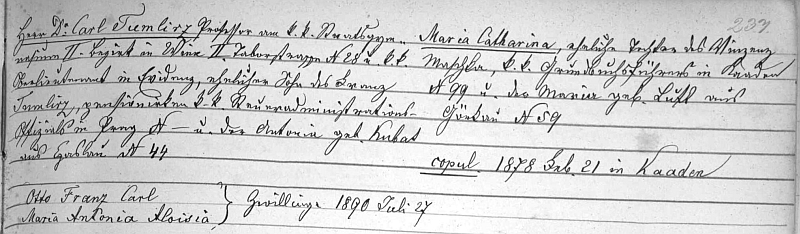 237.
Herr Dr. Carl Tumlirz, Professor am k. k. Staatsgym-
nasium II. Bezirk in Wien II. Taborstrasse N 28 u. k. k.
Oberlieutenant in Evidenz, ehelicher Sohn des Franz
Tumlirz, pensionirten k. k. Steueradministrations-
Offizials in Prag N — u. der Antonia geb. Kubat
aus Časlau N 44
Maria Catharina, eheliche Tochter des Vinzenz
Maschka, k. k. Grundbuchsführers in Kaaden
N 99 u. der Maria geb. Luft aus
Görkau N 59
copul. 1878 Feb. 21 in Kaaden
Otto Franz Carl
Maria Antonia Aloisia } Zwillinge 1890 Juli 27